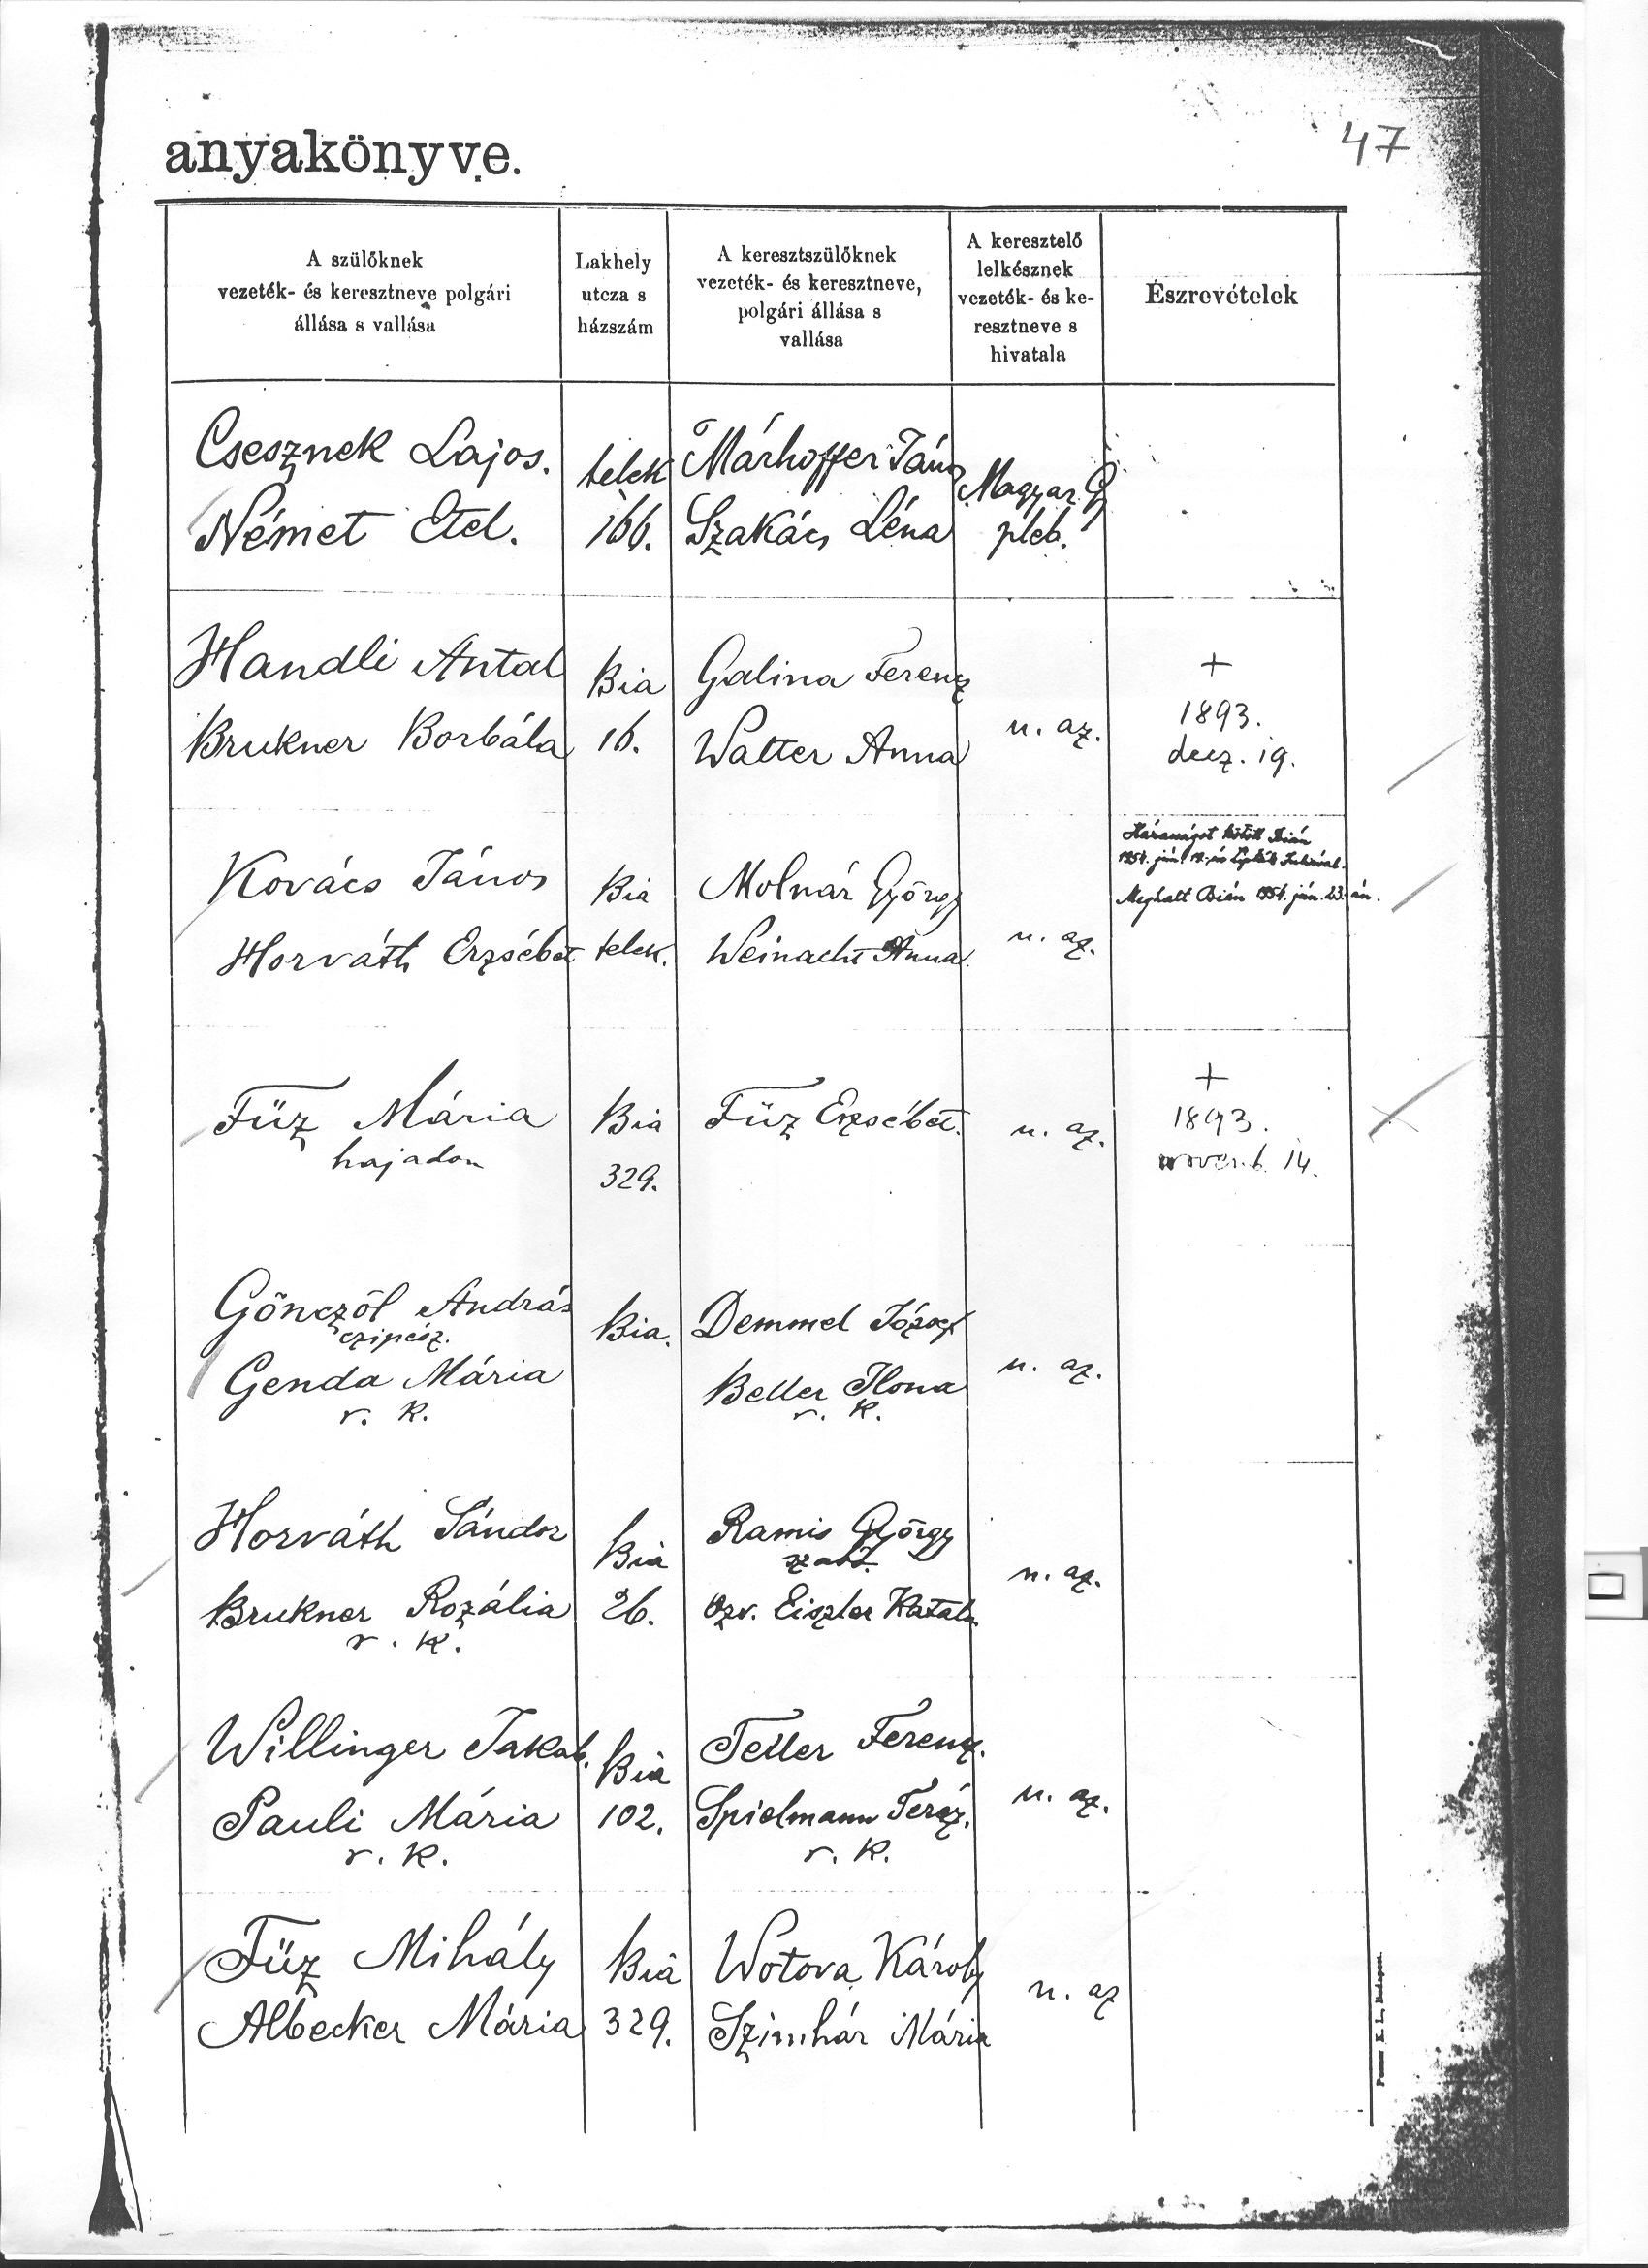 47
anyakönyve.
A szülőknek
vezeték- és keresztneve polgári
állása s vallása
Lakhely
utcza s
házszám
A keresztszülőknek
vezeték- és keresztneve,
polgári állása s
vallása
A keresztelő
lelkésznek
vezeték- és ke-
resztneve s
hivatala
Észrevételek
Csesznek Lajos.
Német Etel.
telek
166.
Márhoffer János
Szakács Léna
Magyar G
pleb.
Handli Antal
Brukner Borbála
Bia
16.
Galina Ferencz
Walter Anna
u. az.
+
1893.
decz. 19.
Kovács János
Horváth Erzsébet
Bia
telek.
Molnár György
Weinacht Anna.
u. az.
Házasságot kötött Bián
Meghalt Bián 1954. jún. 23-án.
Füz Mária
hajadon
Bia
329.
Füz Erzsébet.
u. az.
+
1893.
novemb. 14.
Gönczöl András
czipész.
Genda Mária
r. k.
Bia.
Demmel József
Beller Ilona
r. k.
u. az.
Horváth Sándor
Brukner Rozália
r. k.
Bia
26.
Ramis György
szabó.
özv. Eiszler Katalin
u. az.
Willinger Jakab.
Pauli Mária
r. k.
Bia
102.
Teller Ferencz.
Spielmann Teréz.
r. k.
u. az.
Füz Mihály
Albecker Mária
Bia
329.
Wotova Károly
Szimhár Mária
u. az